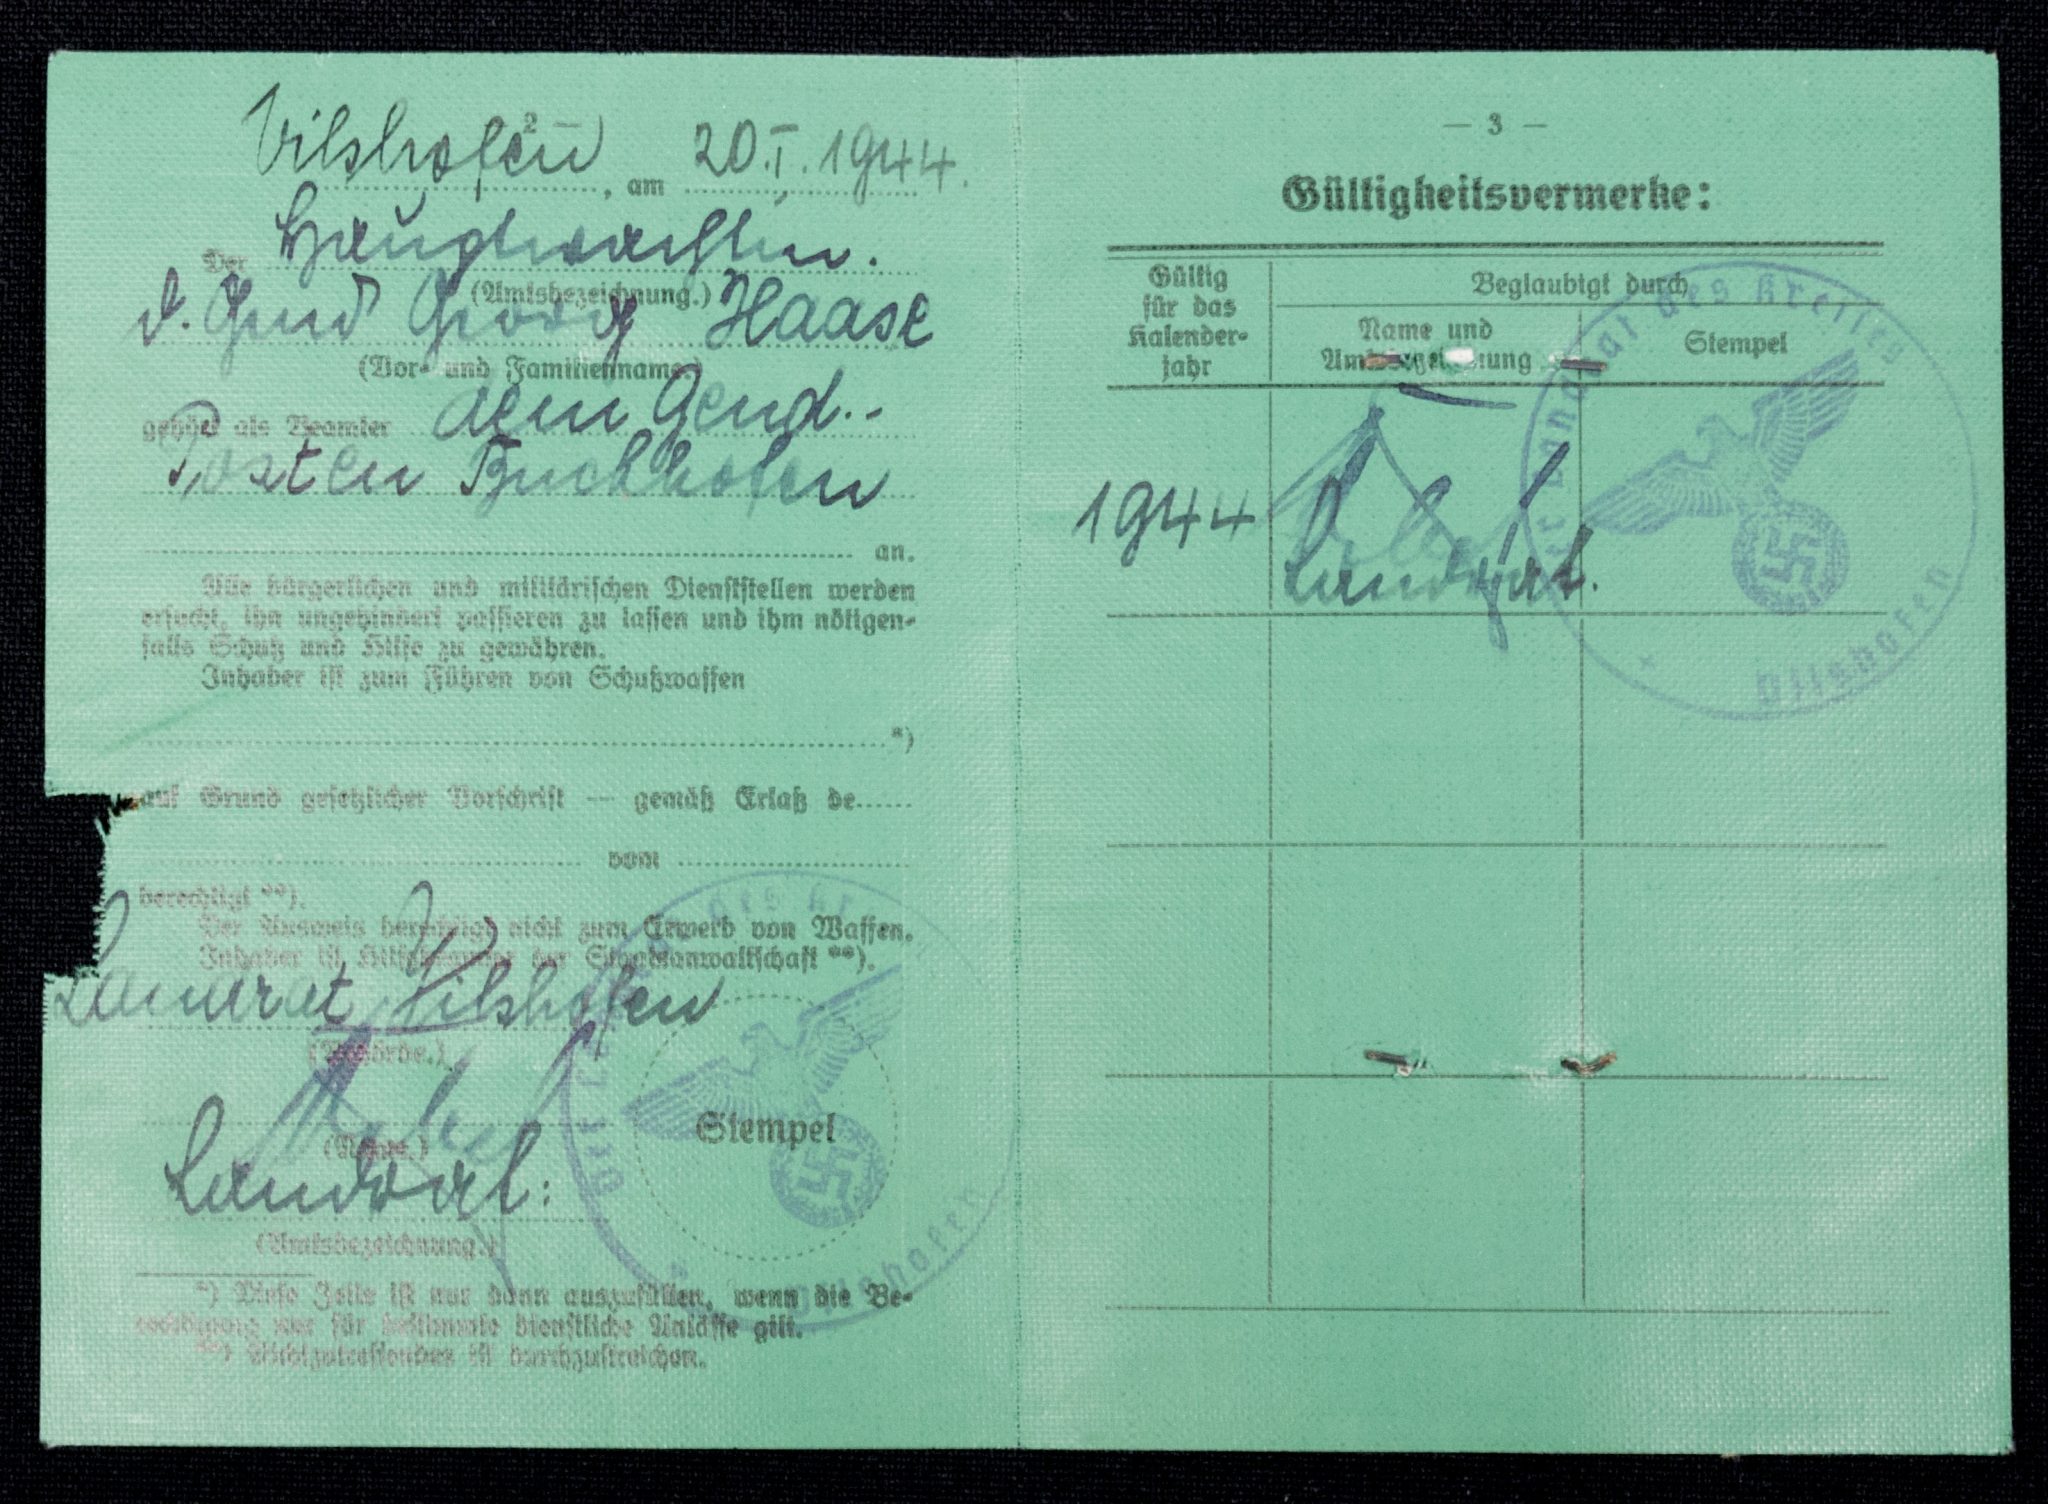 — 2 —
Vilshofen, am 20.I.1944.
Der Hauptwachtm.
(Amtsbezeichnung.)
d. Gend Georg Haase
(Vor- und Familienname.)
gehört als Beamter dem Gend.-
Posten Buchhofen
an.
Alle bürgerlichen und militärischen Dienststellen werden
ersucht, ihn ungehindert passieren zu lassen und ihm nötigen-
falls Schutz und Hilfe zu gewähren.
Inhaber ist zum Führen von Schußwaffen
*)
auf Grund gesetzlicher Vorschrift — gemäß Erlaß de......
vom
berechtigt **).
Der Ausweis berechtigt nicht zum Erwerb von Waffen.
Inhaber ist Hilfsbeamter der Staatsanwaltschaft **).
Landrat Vilshofen
(Behörde.)
(Name.)
Landrat.
(Amtsbezeichnung.)
Stempel
Der Landrat des Kreises
Vilshofen
*) Diese Zeile ist nur dann auszufüllen, wenn die Be-
rechtigung nur für bestimmte dienstliche Anlässe gilt.
**) Nichtzutreffendes ist durchzustreichen.
— 3 —
Gültigkeitsvermerke:
Gültig
für das
Kalender-
jahr
Beglaubigt durch
Name und
Amtsbezeichnung
Stempel
1944
Landrat.
Der Landrat des Kreises
Vilshofen